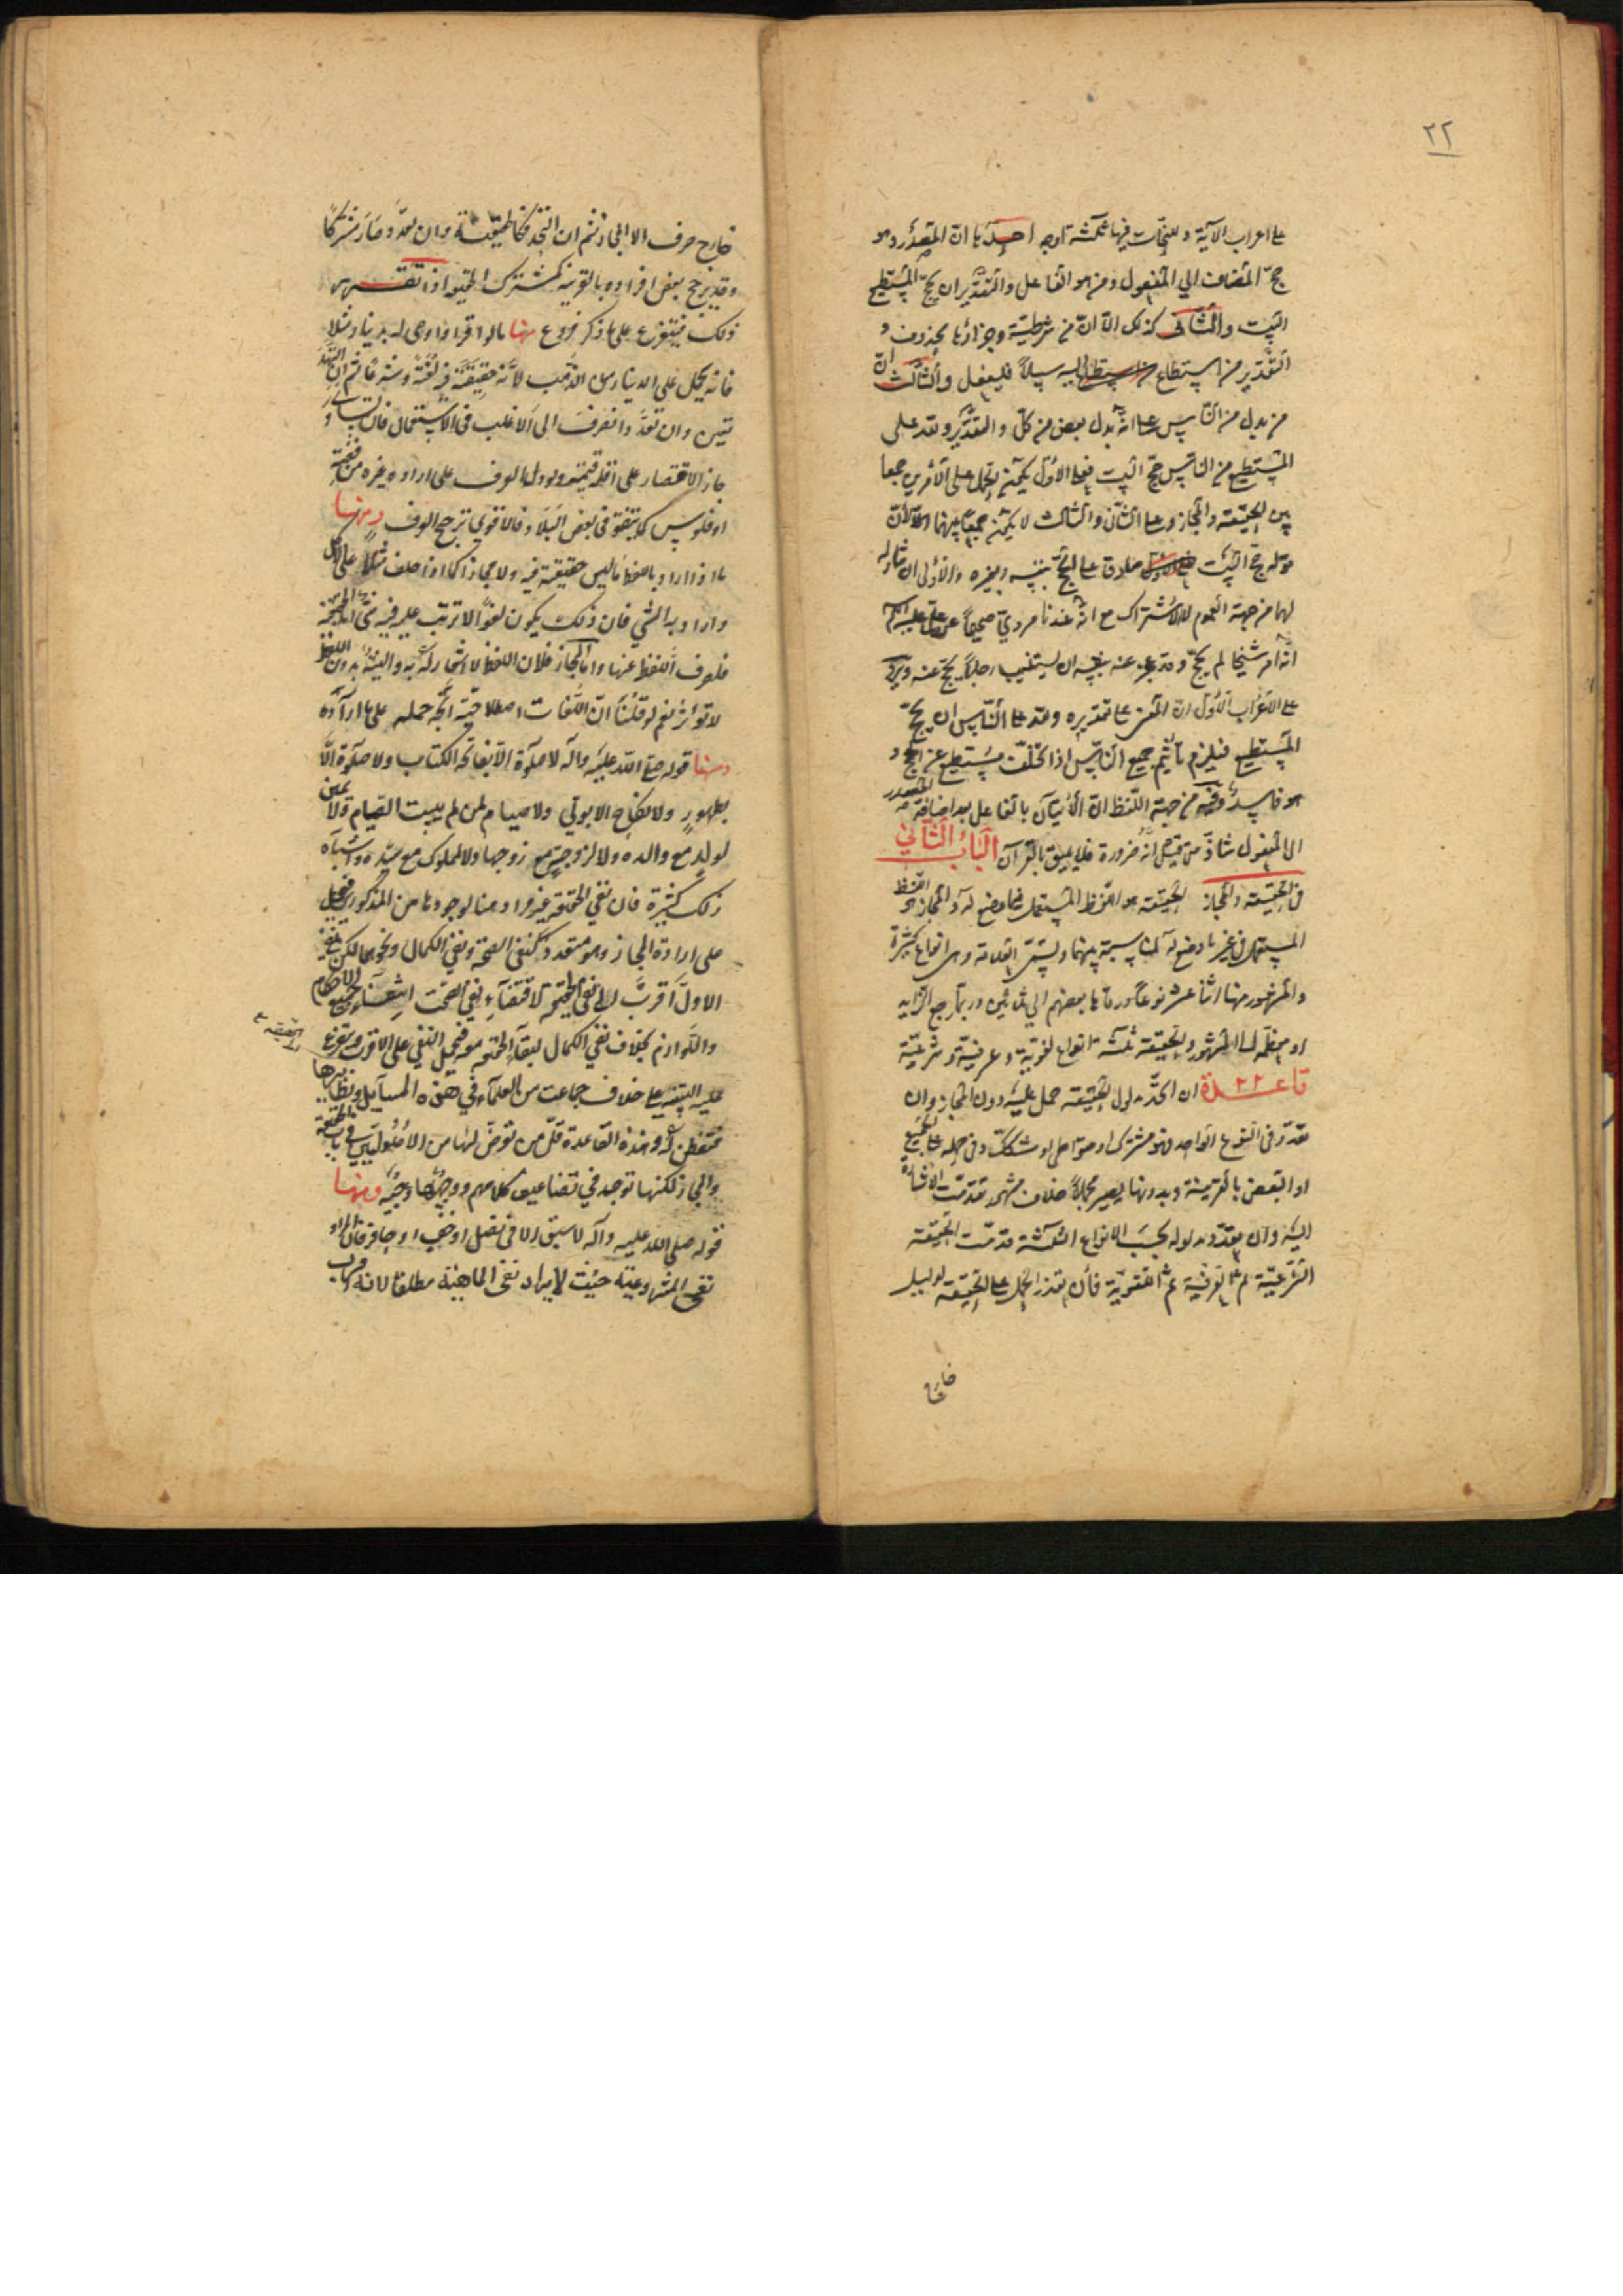 ٢٢
على اعراب الآية وللنحاة فيها ثلثة اوجه احدها ان المصدر وهو
حج المضاف الي المفعول ومن هو الفاعل والتقدير ان يحج المستطيع
البيت والثاني كذلك الا ان من شرطية وجزاؤها محذوف و
التقدير من استطاع اليه سبيلاً فليفعل والثالث ان
من بدل من الناس على انه بدل بعض من كل والتقدير ولله على
المستطيع من الناس حج البيت فعلى الأول يمكن الحمل على الأمرين جمعا
بين الحقيقة والمجاز وعلى الثاني والثالث لا يمكن الجمع بينهما الا لان
قوله حج البيت صادق على الحج بنفسه وبغيره والأولى ان تناوله
لهما من جهة العموم لا الاشتراك مع انه عندنا مروي صحيحاً عن علي عليه السلم
انه امر شيخا لم يحج وقد عجز عنه بنفسه ان يستنيب رجلاً يحج عنه ويرد
على الاعراب الأول ان المعنى على تقديره ولله على الناس ان يحج
المستطيع فيلزم تأثيم جميع الناس اذا تخلف مستطيع عن الحج و
هو فاسد وفيه من جهة اللفظ ان الاتيان بالفاعل بعد اضافة المصدر
الى المفعول شاذ حتى قيل انه ضرورة فلا يليق بالقرآن الباب الثاني
في الحقيقة والمجاز الحقيقة هو اللفظ المستعمل فيما وضع له والمجاز هو اللفظ
المستعمل في غير ما وضع له لمناسبة بينهما وتسمى العلاقة وهي انواع كثيرة
والمشهور منها اثنا عشر نوعاً ورقاها بعضهم الى ثلاثين وربما رجع الزايد
او معظمه الى المشهور والحقيقة ثلثة انواع لغوية وعرفية وشرعية
قاعدة ٢٢ ان اتحد مدلول الحقيقة حمل عليه دون المجاز وان
تعدد في النوع الواحد فهو مشترك او متواطى او مشكك وفي حمله على الجميع
او البعض بالقرينة وبدونها يصير مجملاً خلاف مشهور تقدمت الاشارة
اليه وان تعدد مدلوله بحسب الانواع الثلثة قدمت الحقيقة
الشرعية ثم العرفية ثم اللغوية فان تعذر الحمل على الحقيقة لدليل
خارج صرف الى المجاز ثم ان اتحد فكالحقيقة وان تعدد صار مشتركاً
وقد يرجح بعض افراده بالقرينة كمشترك الحقيقة اذا تقرر
ذلك فيتفرع على ما ذكر فروع منها ما لو اقر او اوصى له بدينار مثلاً
فانه يحمل على الدينار من الذهب لانه حقيقة فيه لغة وشرعاً ثم ان اتحد
تعين وان تعدد انصرف الى الاغلب في الاستعمال فان تساوى
جاز الاقتصار على اقله قيمة ولو دل العرف على ارادة غيره من فضة
او فلوس كما يتفق في بعض البلاد فالاقوى ترجيح العرف ومنها
ما اذا اراد باللفظ ما ليس حقيقة فيه ولا مجازا كما اذا حلف مثلاً على الاكل
واراد به المشي فان ذلك يكون لغواً لا ترتب عليه فيه شي اما الحقيقة
فلصرف اللفظ عنها واما المجاز فلان اللفظ لا اشعار له به والنية بدون اللفظ
لا تؤثر نعم لو قلنا ان اللغات اصطلاحية اتجه حمله على ما اراده
ومنها قوله صلى الله عليه وآله لا صلوة الا بفاتحة الكتاب ولا صلوة الا
بطهور ولا نكاح الا بولي ولا صيام لمن لم يبيت الصيام ولا يمين
لولد مع والده ولا لزوجة مع زوجها ولا لمملوك مع سيده واشباه
ذلك كثيرة فان نفي الحقيقة غير مراد هنا لوجودها من المذكور فيحمل
على ارادة المجاز وهو متعدد كنفي الصحة ونفي الكمال ونحوهما لكن
الاول اقرب الى نفي الحقيقة لاقتضاء نفي الصحة انتفاء جميع الاحكام
واللوازم بخلاف نفي الكمال لبقاء الحقيقة معه فيحمل النفي على الاقرب الى الحقيقة ويتفرع
عليه التنبيه على خلاف جماعة من العلماء في هذه المسايل ونظايرها
فتفطن له وهذه القاعدة قل من تعرض لها من الأصوليين في باب الحقيقة
والمجاز لكنها توجد في تضاعيف كلامهم ووجهها وجيه ومنها
قوله صلى الله عليه وآله لا سبق الا في نصل او خف او حافر فان المراد
نفي المشروعية حيث لا يراد نفي الماهية مطلقا لانه اقرب